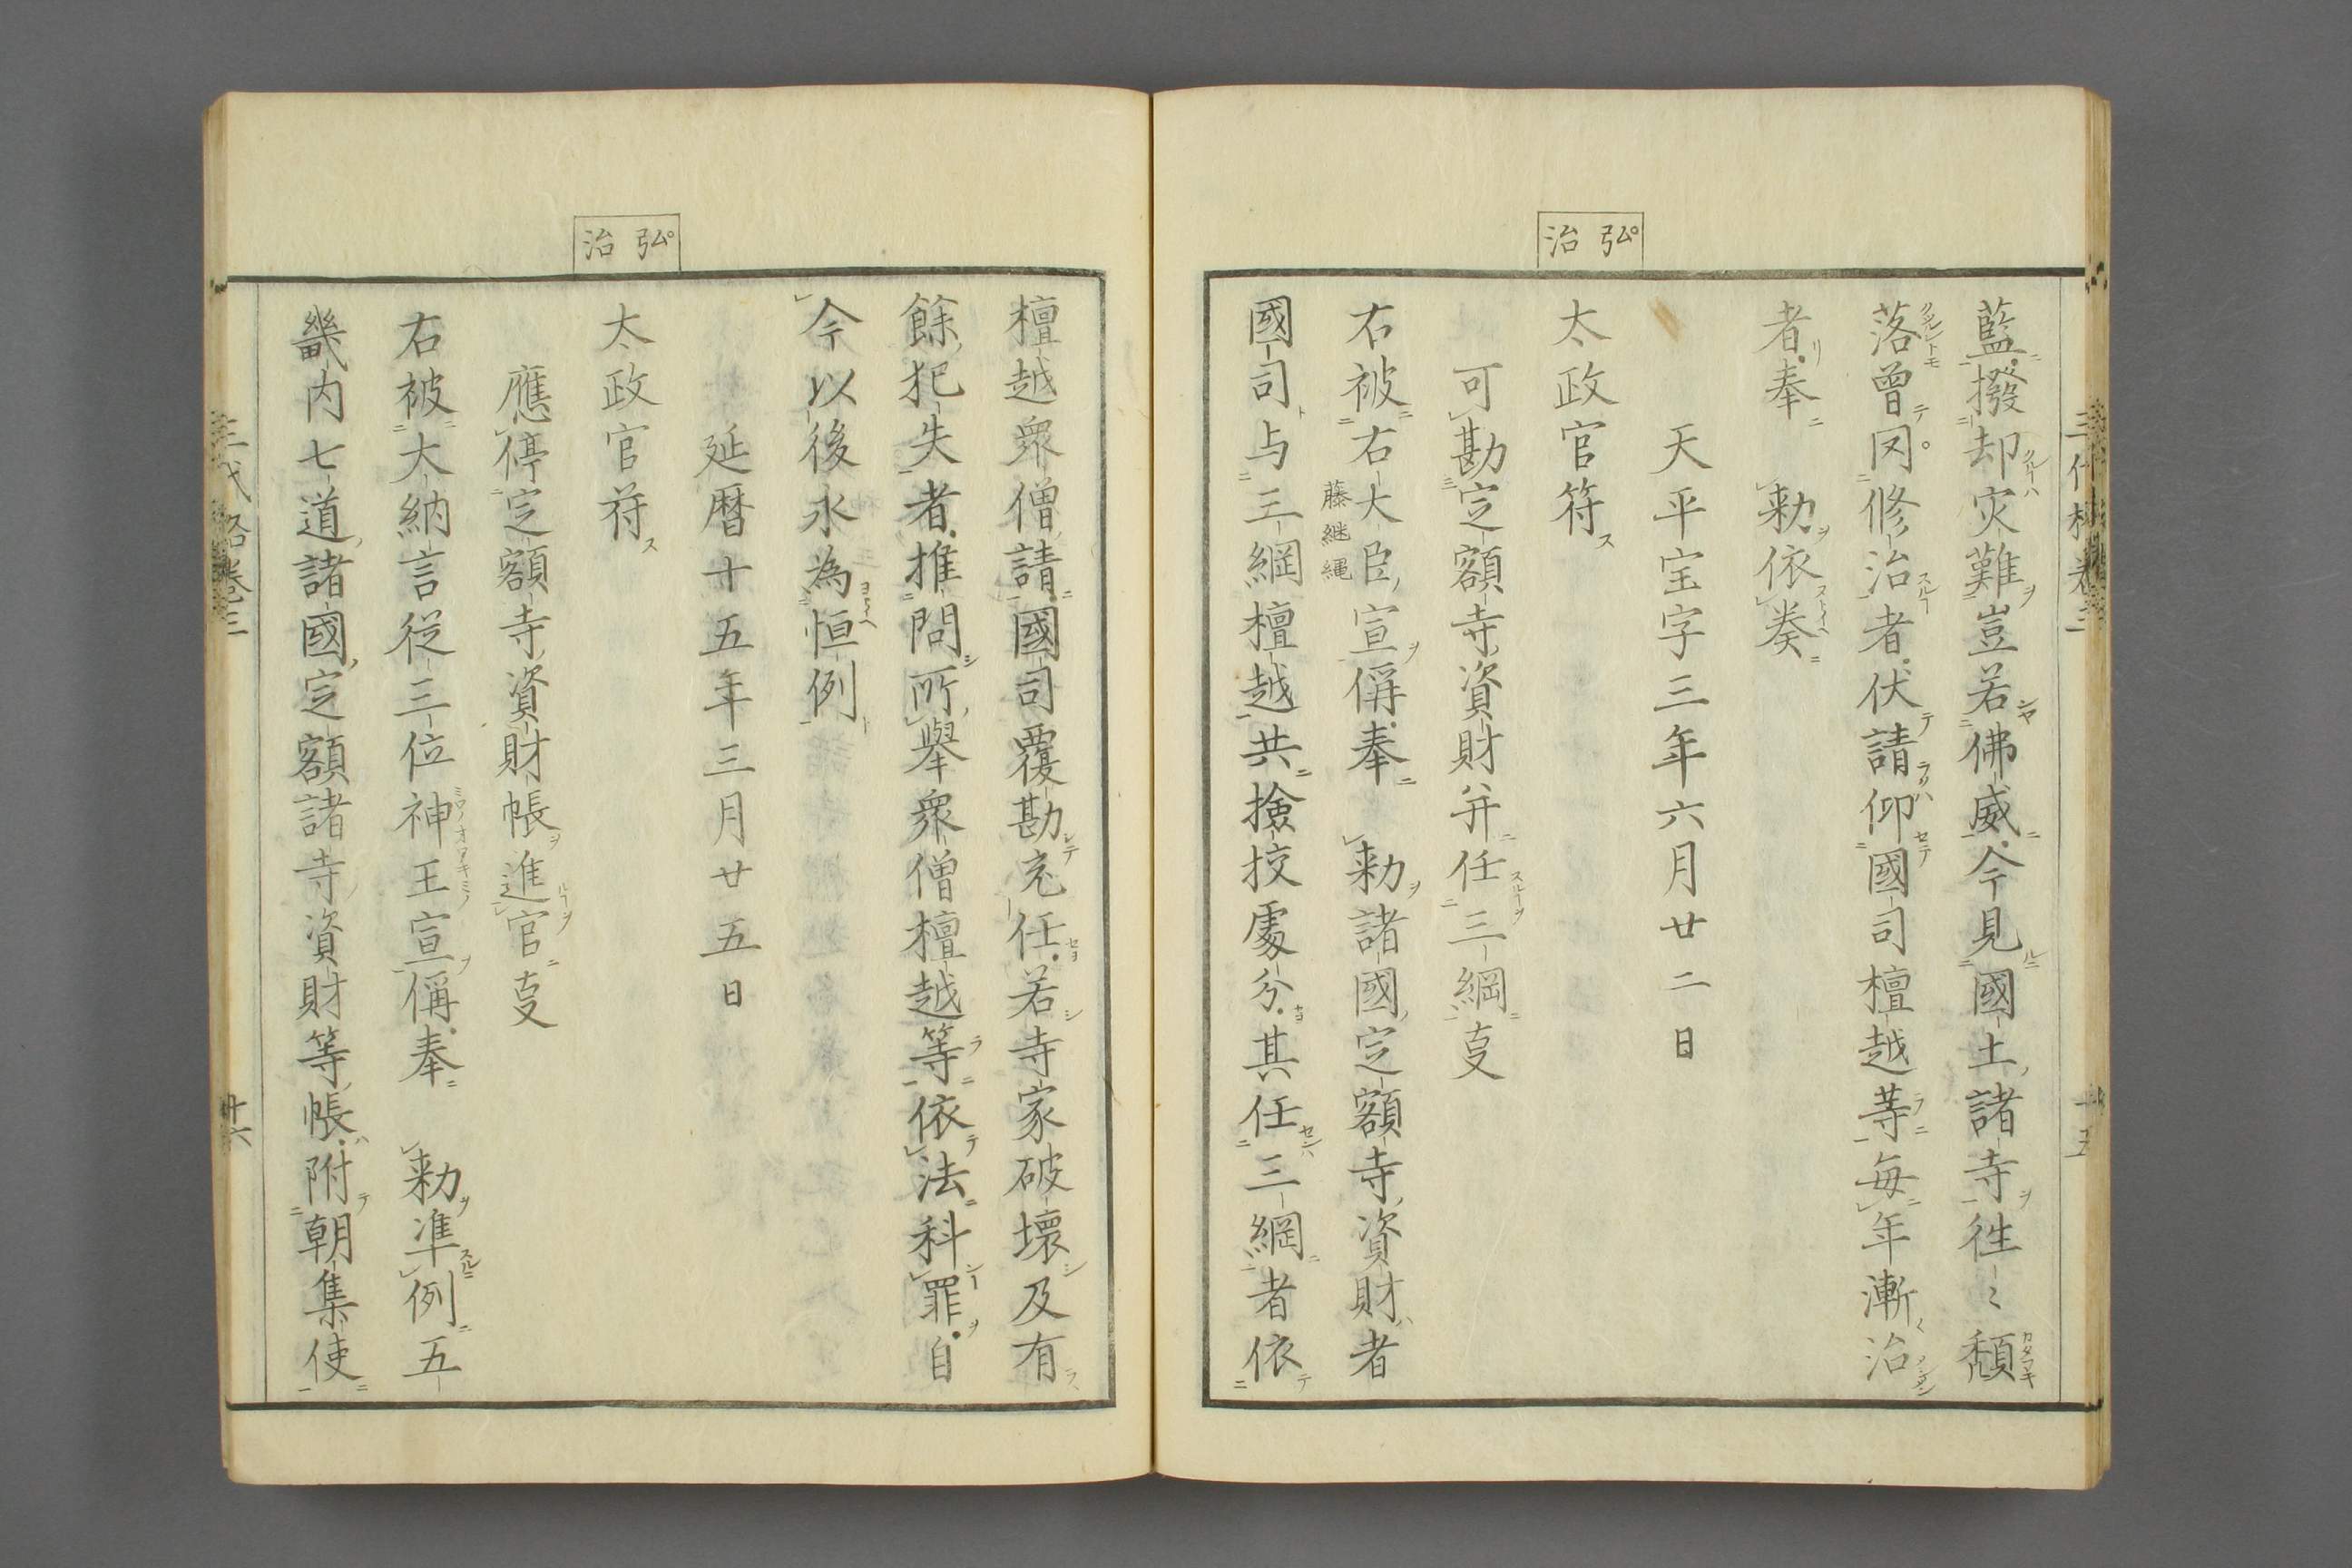 弘治
藍撥却灾難豈若佛威今見國土諸寺徃〻頽
落曾罔修治者伏請仰國司檀越䓁每年漸治
者奉　勅依奏
天平宝字三年六月廿二日
太政官符
可勘定額寺資財并任三綱㕝
右被右大臣宣偁奉　勅諸國定額寺資財者
藤継縄
國司与三綱檀越共撿挍處分其任三綱者依
弘治
檀越衆僧請國司覆勘充任若寺家破壞及有
餘犯失者推問所舉衆僧檀越等依法科罪自
今以後永為恒例
延暦十五年三月廿五日
太政官苻
應停定額寺資財帳進官㕝
右被大納言従三位神王宣偁奉　勅準例五
畿内七道諸國定額諸寺資財等帳附朝集使
三代格卷三
十六